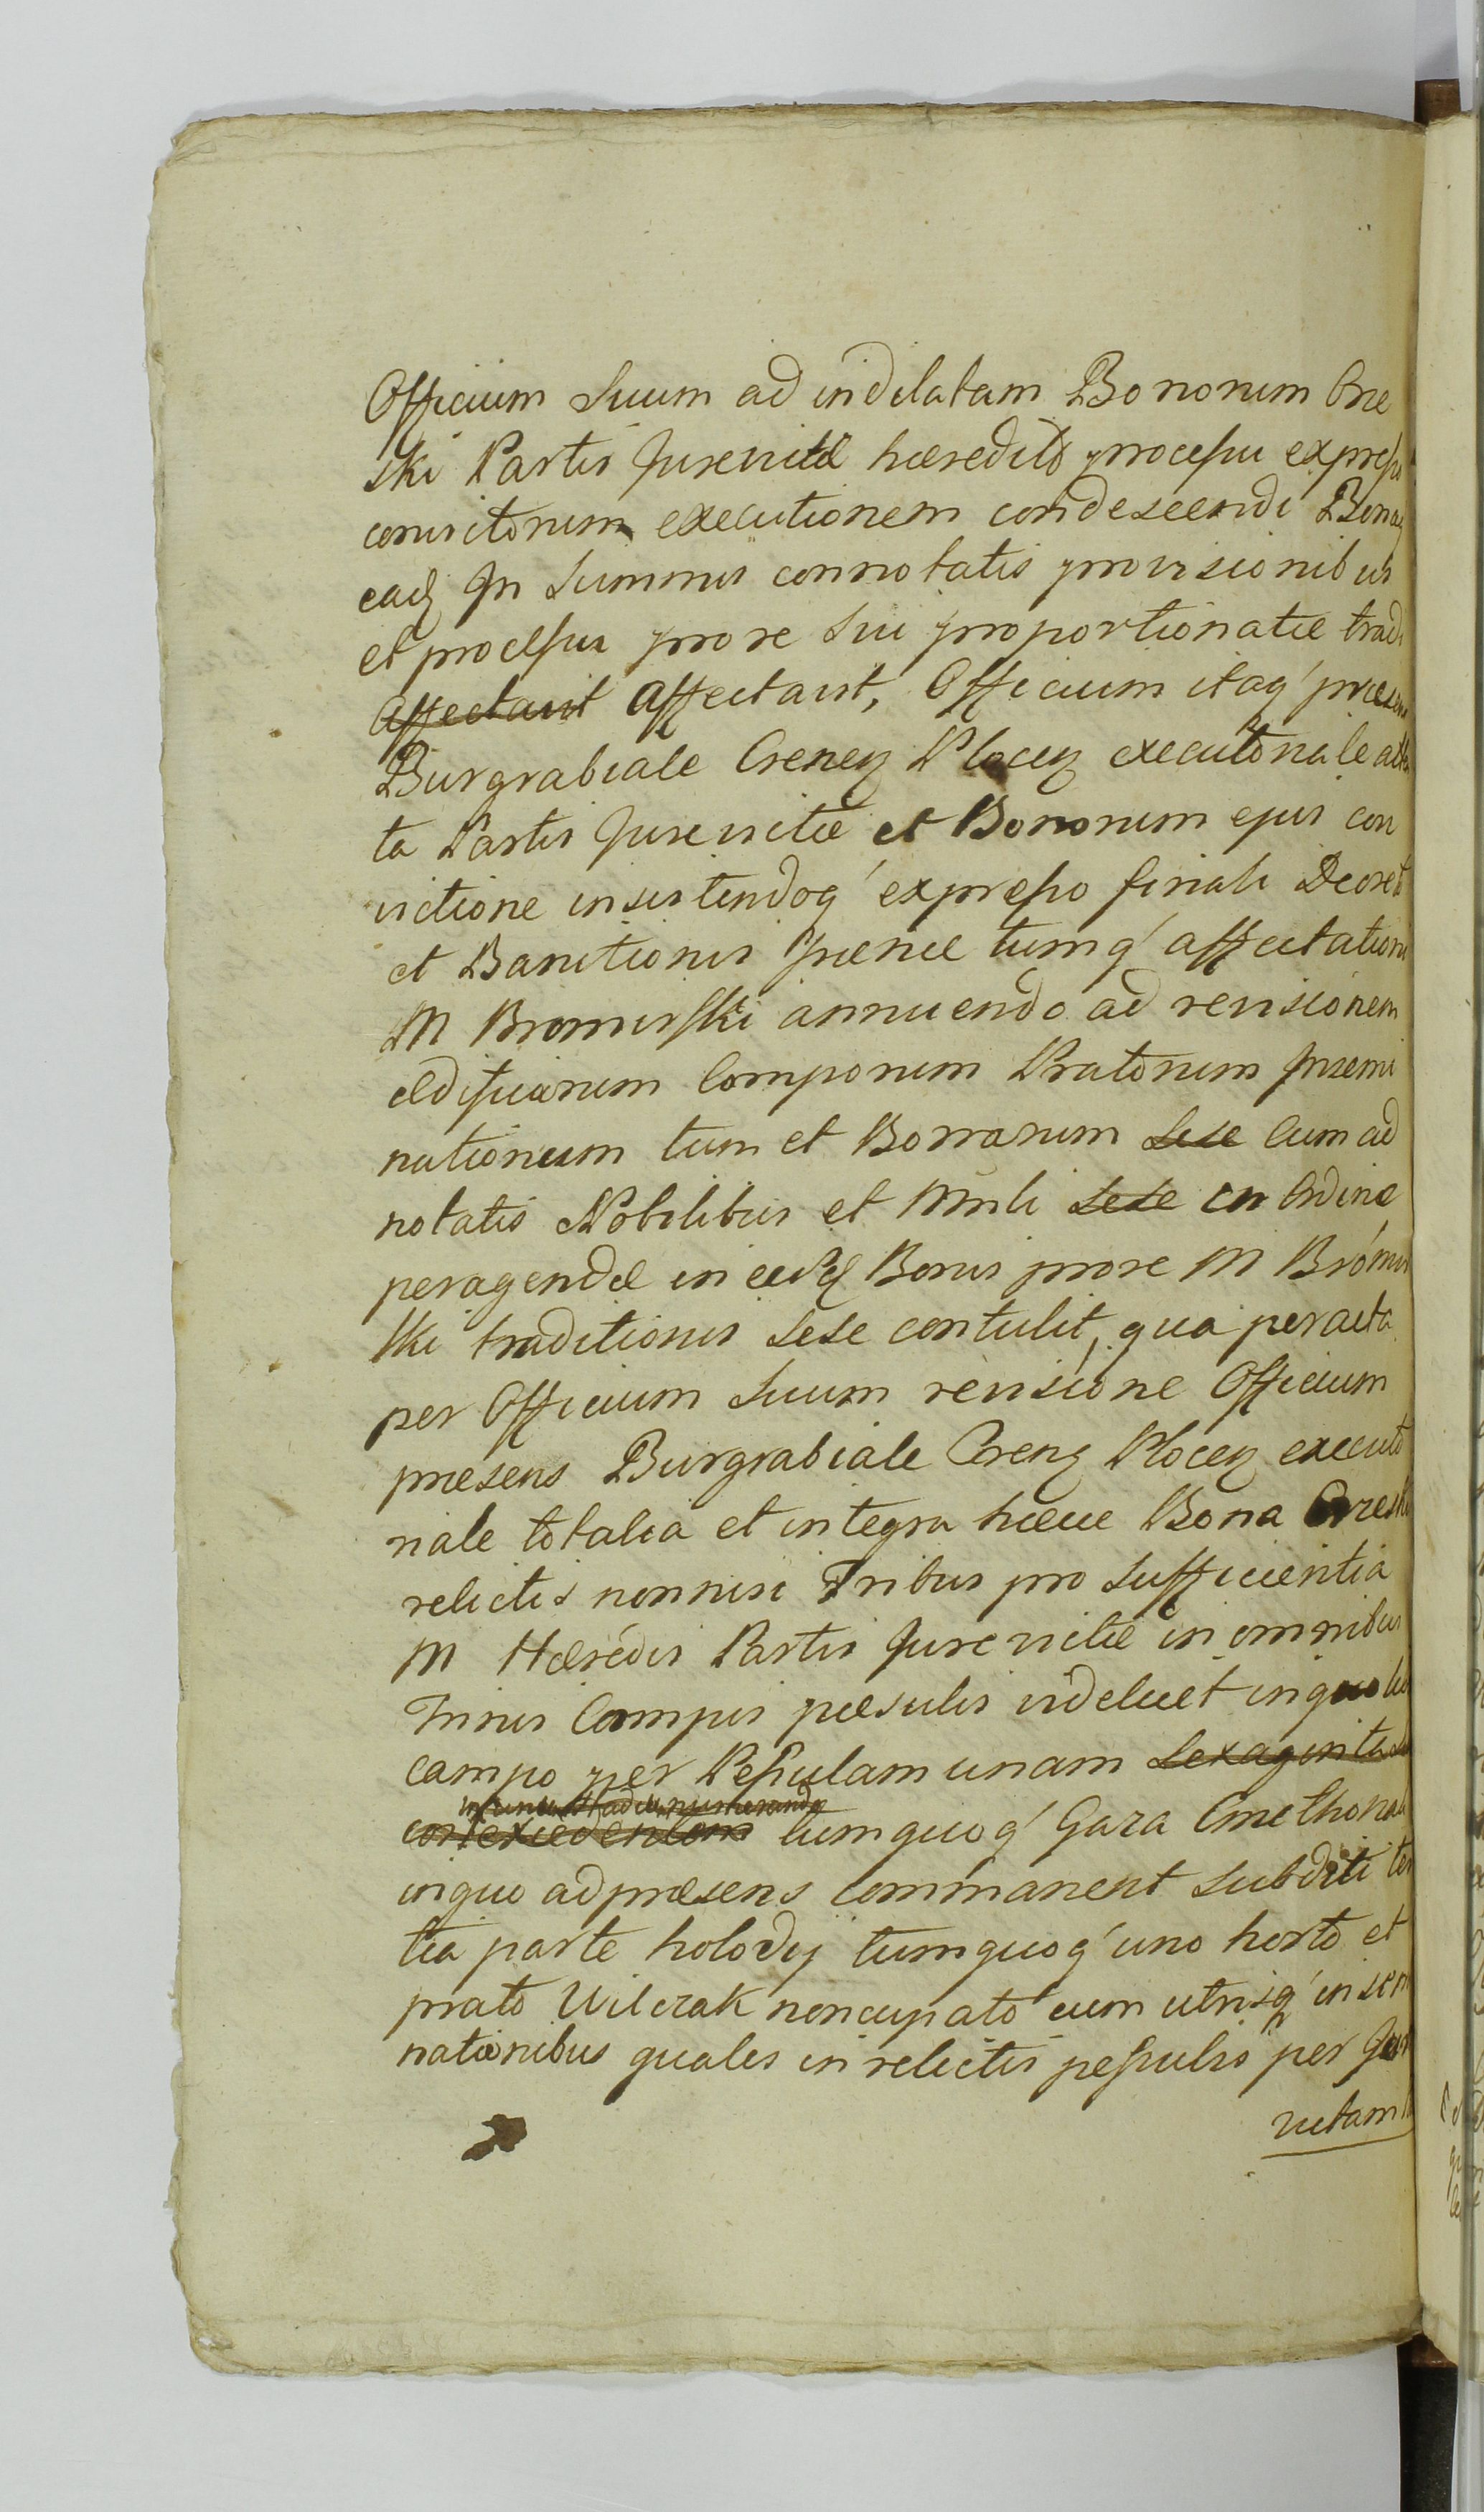 Officium Suum ad indilatam Bonorum Ore
ski Partis Jurevictæ hæredito processu expresso
convictorum executionem condescendi Bonaq
eadq In Summis connotatis provisionibus
et processu pro re sui proportionate tradi
Affectavit Affectavit, Officium itaq præsens
Burgrabiale Crenen Plocen executoriale atten
ta Partis Jurevictæ et Bonorum ejus con
victione insistendoq expresso finali Decreto
et Banitionis pœnæ tumq affectationi
M Bromirski annuendo ad revisionem
ædificiorum Camporum Pratorum Insemi
nationum tum et Borrarum Sese Cum ad
notatis Nobilibus et Mnli Sese in Ordine
peragendæ in eisdq Bonis pro re M Bromir
ski traditionis Sese contulit, qua peracta
per Officium Suum revisione Officium
præsens Burgrabiale Cren Plocen executo
riale totalia et integra hæcce Bona Oreski
relictis nonnisi Tribus pro Sufficientia
M Hæredis Partis Jurevictæ in omnibus
Trinis Campis pæsulis videlicet in quolib
campo per Pessulam unam Sexaginta
continentem tumquoq Gaza Cmethonali
in quo ad præsens commanent Subditi ter
tia parte holody tumquoq uno horto et
prato Wilczak noncupato cum utrisq insemi
nationibus quales in relictis pessulis per Jure
victam